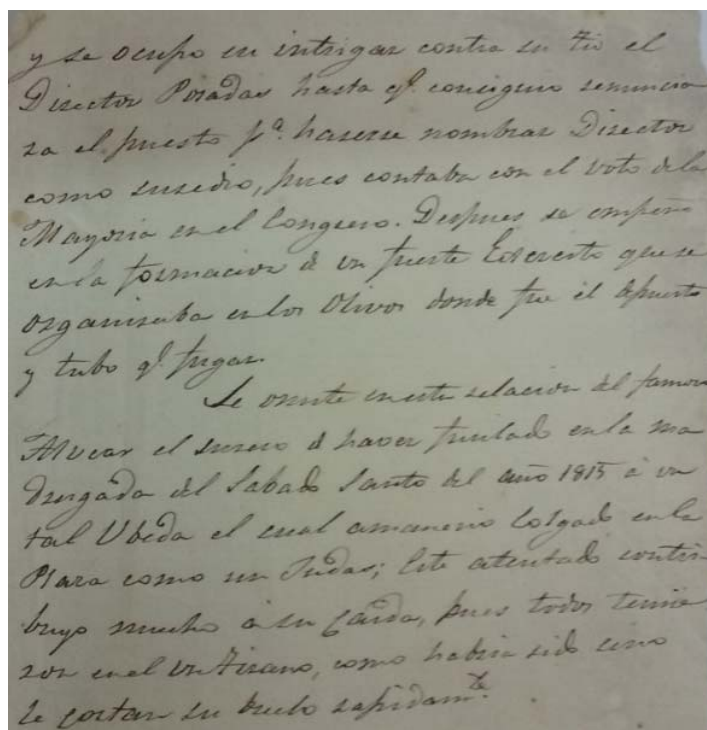 y se ocupo en intrigar contra su tio el
Director Posadas hasta q.e consiguio renuncia
ra el puesto p.a haserse nombrar Director
como susedio, pues contaba con el voto dela
Mayoria en el Congreso. Despues se empeño
en la formacion de un fuerte Egercito que se
organisaba en los Olivos donde fue el depuesto
y tubo q.e fugar.
Se omite en esta relacion del famoso
Alvear el suseso d haver fusilado en la ma
drugada del Sabado Santo del año 1815 á un
tal Ubeda el cual amanecio colgado en la
Plaza como un Judas; Este atentado contri
buyo mucho a su caida, pues todos temie
ron en el un tirano, como habria sido sino
le cortan su buelo rapidam.te